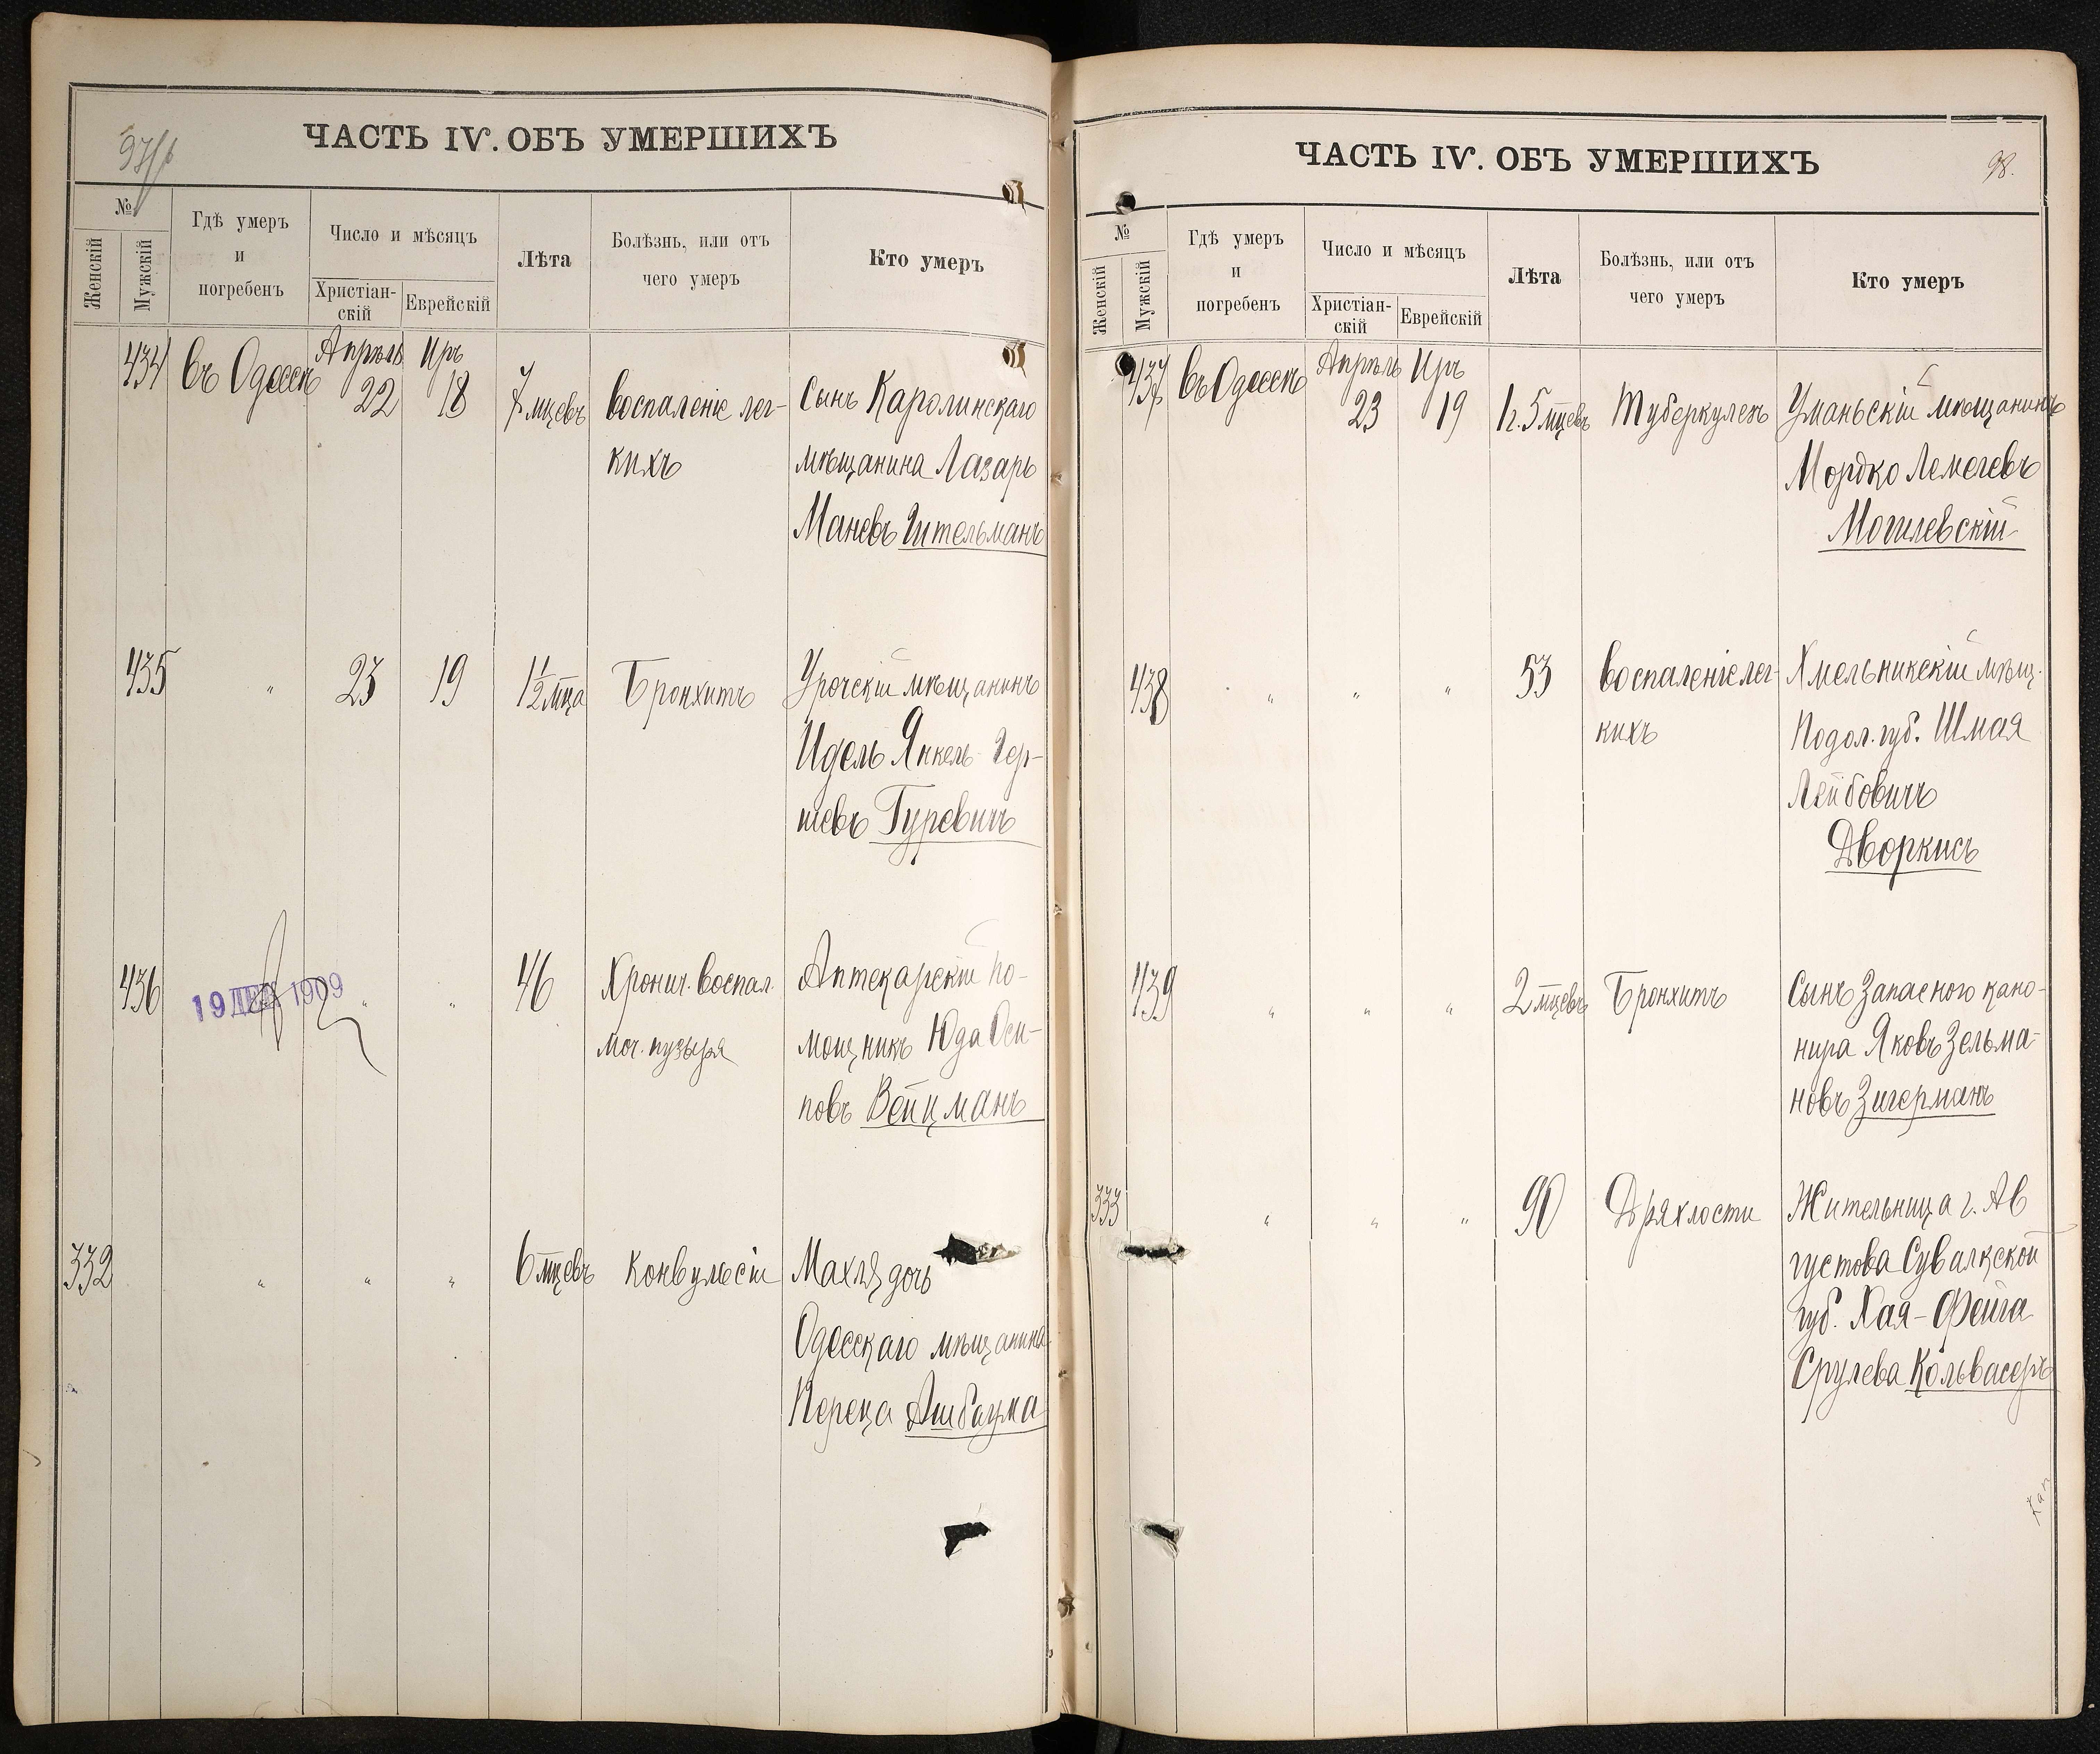 ЧАСТЬ IV. ОБЪ УМЕРШИХЪ
№
Женскій
Мужскій
Гдѣ умеръ
и
погребенъ
Число и мѣсяцъ
Христіан-
скій
Еврейскій
Лѣта
Болѣзнь, или отъ
чего умеръ
Кто умеръ
434 въ Одессѣ Апрѣль 22 Иръ 18 7 мцевъ воспаленіе лег- Сынъ Каролинскаго
кихъ мѣщанина Лазарь
Маневъ Гительманъ
435 " 23 19 1½ мца Бронхитъ Урочскій мѣщанинъ
Идель Янкель Гер-
шевъ Гуревичъ
436 " " 46 Хронич. воспал. Аптекарскій по-
19 ДЕК 1909
моч. пузыря мощникъ Юда Оси-
повъ Вейцманъ
332 " " " 6 мцевъ Конвульсіи Махля дочь
Одесскаго мѣщанина
Переца Ашбаума
ЧАСТЬ IV. ОБЪ УМЕРШИХЪ
98.
№
Женскій
Мужскій
Гдѣ умеръ
и
погребенъ
Число и мѣсяцъ
Христіан-
скій
Еврейскій
Лѣта
Болѣзнь, или отъ
чего умеръ
Кто умеръ
437 въ Одессѣ Апрѣль 23 Иръ 19 1 г. 5 мцевъ Туберкулезъ Уманьскій мѣщанинъ
Мордко Лемегевъ
Могилевскій
438 " " " 53 воспаленіе лег- Хмельникскій мѣщ.
кихъ Подол. губ. Шмая
Лейбовичъ
Дворкисъ
439 " " " 2 мцевъ Бронхитъ Сынъ Запасного кано-
нира Яковъ Зельма-
новъ Зигерманъ
333 " " " 90 Дряхлости Жительница г. Ав
густова Сувалкской
губ. Хая-Фейга
Срулева Кольвасеръ